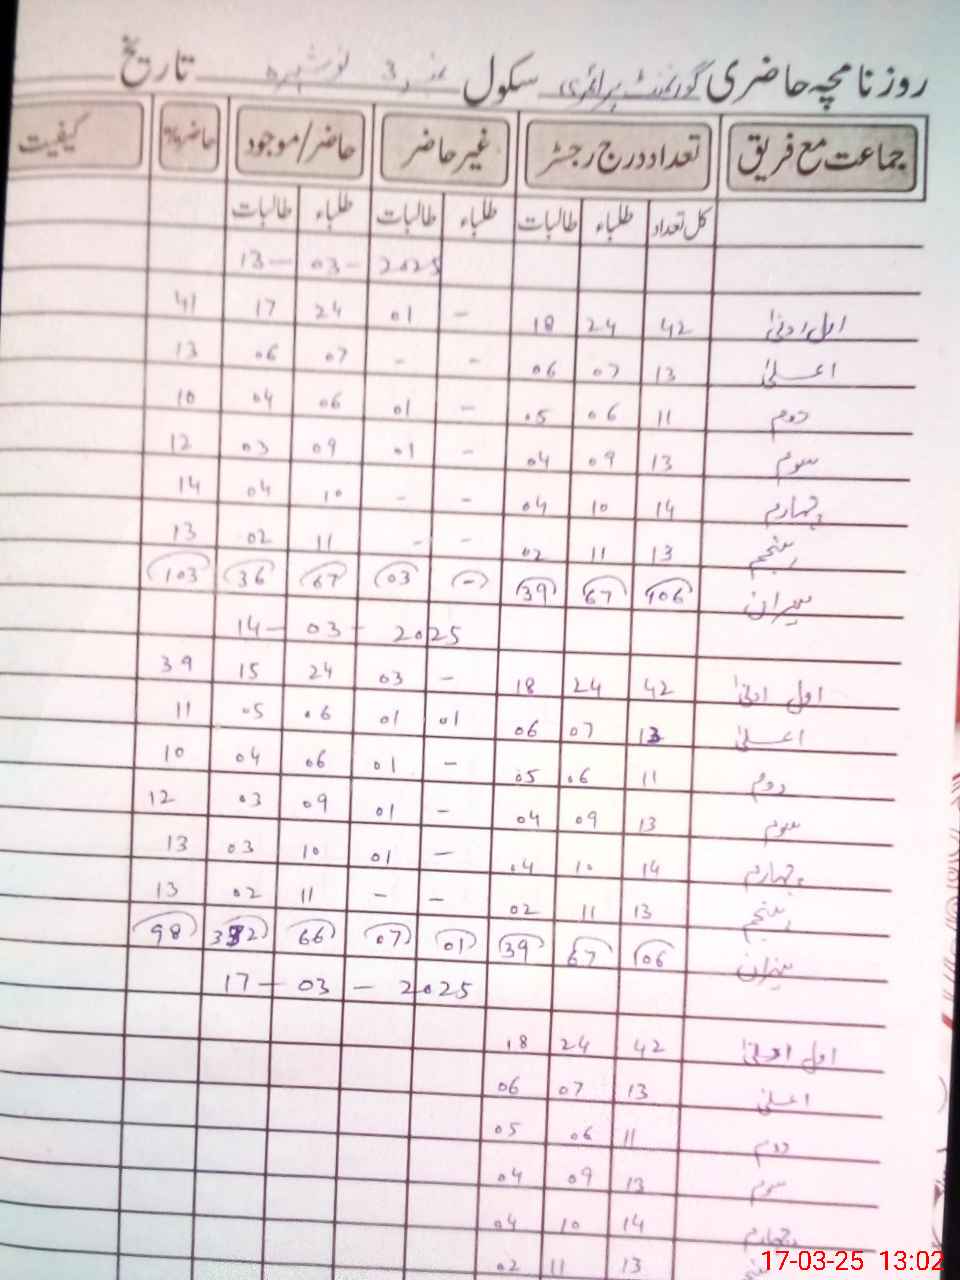 روزنامچہ حاضری گورنمنٹ پرائمری سکول نمبر 3 نوشہرہ تاریخ
جماعت مع فریق تعداد درج رجسٹر غیر حاضر حاضر/موجود کیفیت
کل تعداد طلباء طالبات طلباء طالبات طلباء طالبات
13 - 03 - 2025
اول ادنیٰ 42 24 18 - 01 24 17 41
اعلیٰ 13 07 06 - - 07 06 13
دوم 11 06 05 - 01 06 04 10
سوم 13 09 04 - 01 09 03 12
چہارم 14 10 04 - - 10 04 14
پنجم 13 11 02 - - 11 02 13
میزان 106 67 39 - 03 67 36 103
14 - 03 - 2025
اول ادنیٰ 42 24 18 - 03 24 15 39
اعلیٰ 13 07 06 01 01 06 05 11
دوم 11 06 05 - 01 06 04 10
سوم 13 09 04 - 01 09 03 12
چہارم 14 10 04 - 01 10 03 13
پنجم 13 11 02 - - 11 02 13
میزان 106 67 39 01 07 66 32 98
17 - 03 - 2025
اول ادنیٰ 42 24 18
اعلیٰ 13 07 06
دوم 11 06 05
سوم 13 09 04
چہارم 14 10 04
13 11 02
17-03-25 13:02